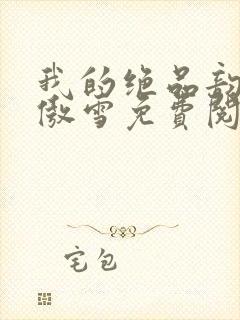 我的绝品
傲雪免费阅
宅包